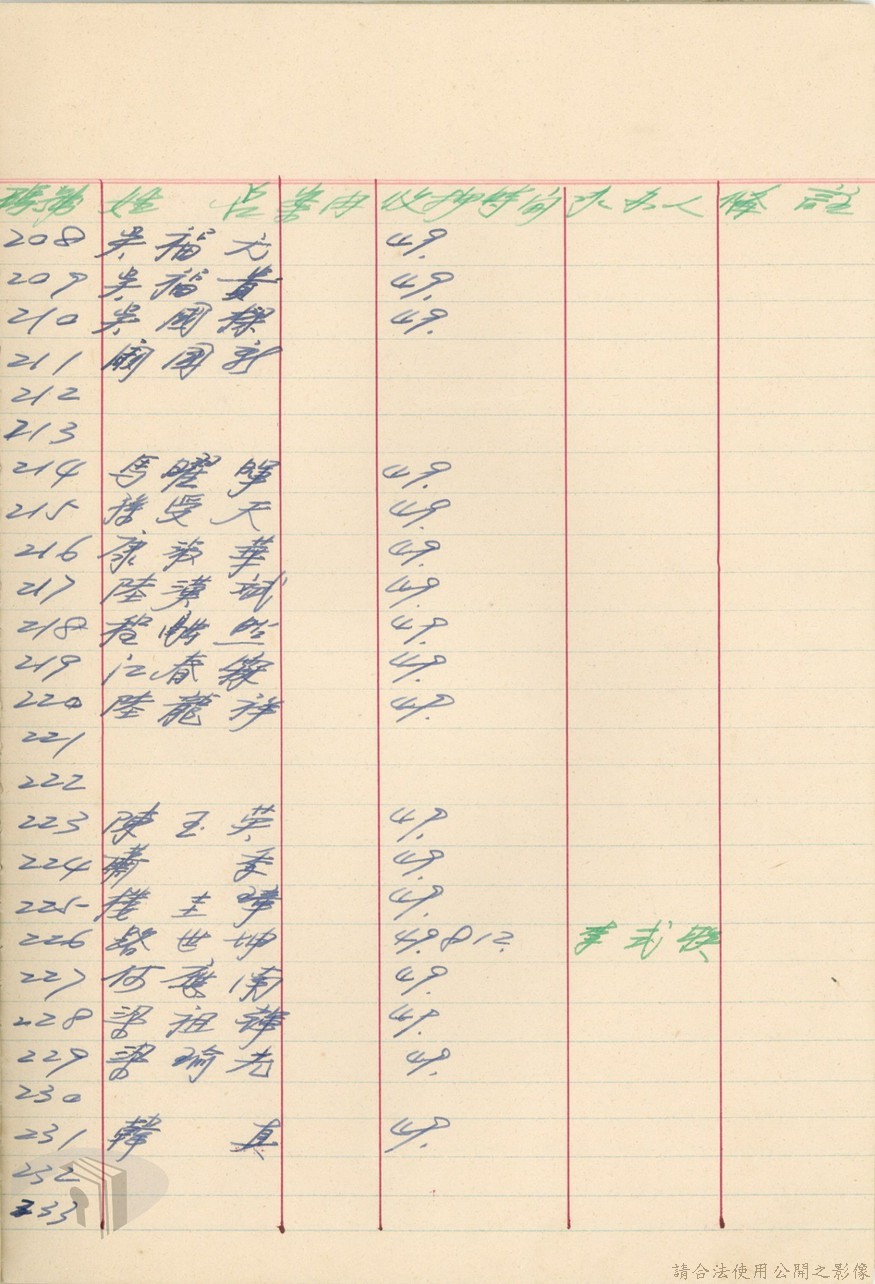 號 姓 名 案由 收押時間 承办人 備 註
208 吳福元 49.
209 吳福貴 49.
210 吳國樑 49.
211 國新
212
213
214 馬曜 49.
215 天 49.
216 康淑華 49.
217 陸漢斌 49.
218 程鵬 49.
219 江春 49.
220 陸龍祥 49.
221
222
223 陳玉英 49.
224 49.
225 圭璋 49.
226 駱世坤 49.8.12. 李武
227 何應南 49.
228 梁祖 49.
229 梁瑜光 49.
230
231 韓真 49.
232
233
請合法使用公開之影像